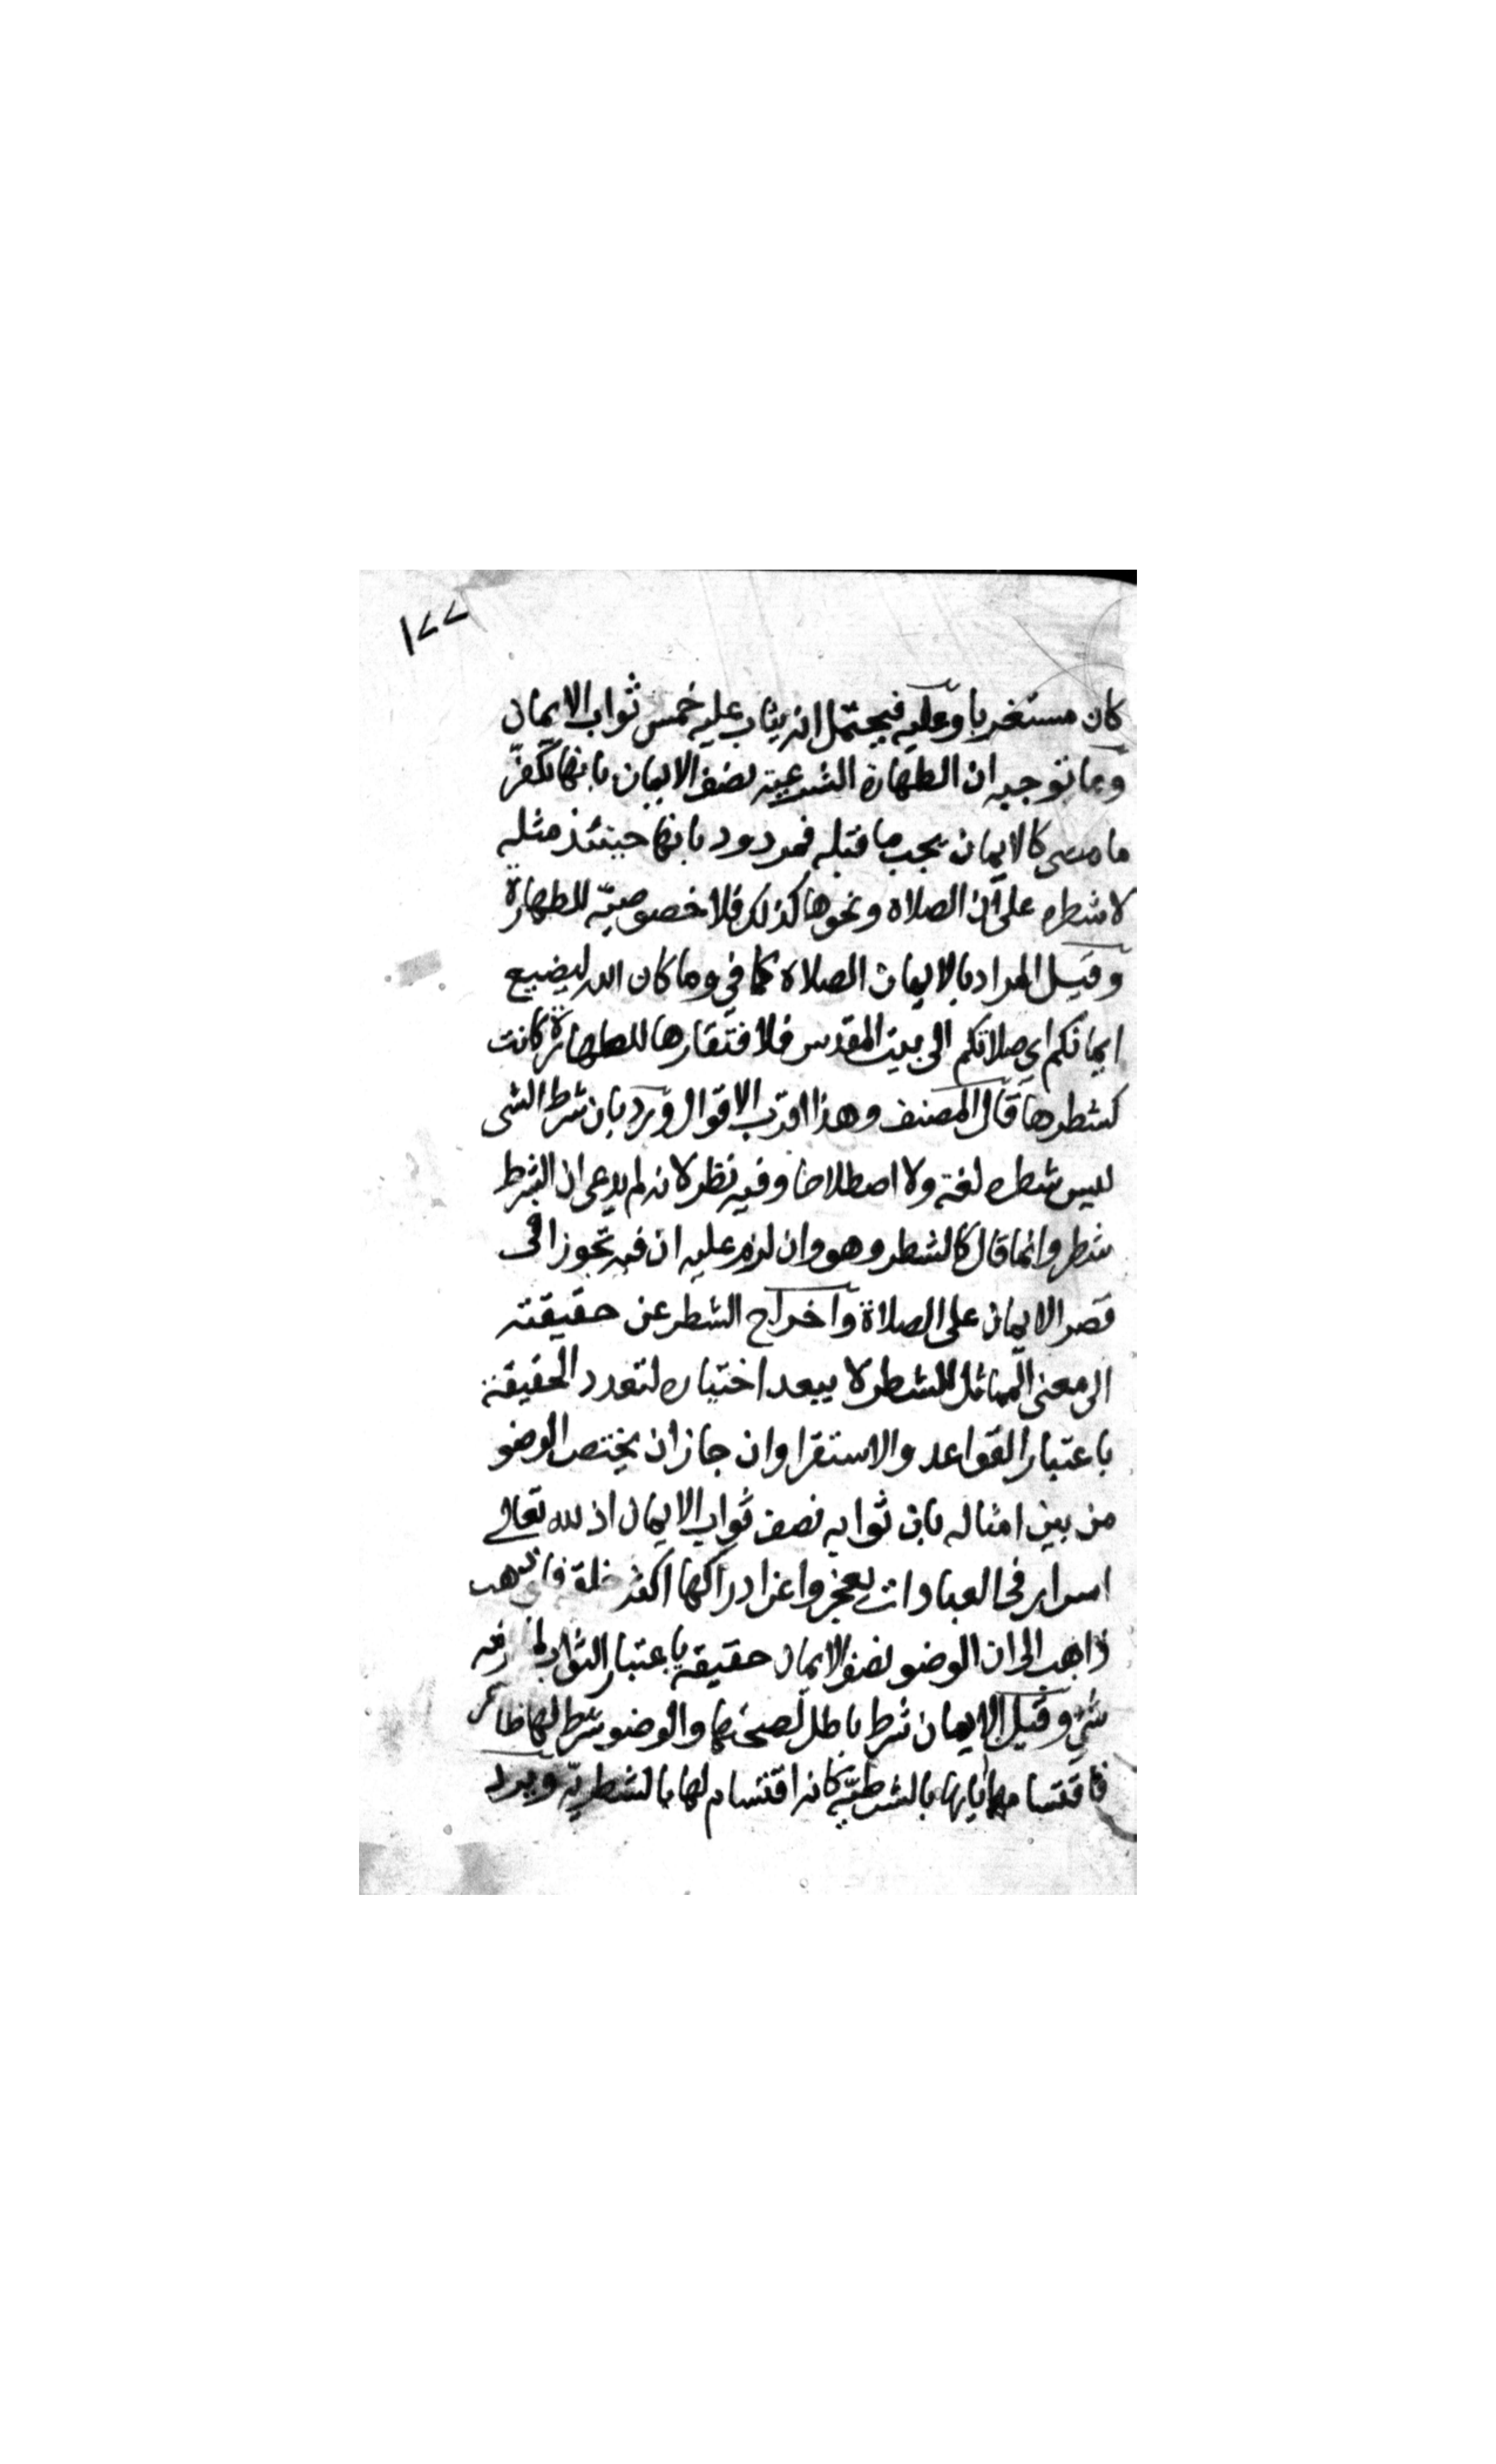 ١٧٧
كان مستغربا وعليه فيحتمل انه يثاب عليه خمس ثواب الايمان
وعما توجيه ان الطهارة الشرعية نصف الايمان بانها تكفر
ما مضى كالايمان يجب ما قبله فمردود بانها حينئذ مثله
لا شطره على ان الصلاة ونحوها كذلك فلا خصوصية للطهارة
وقيل المراد بالايمان الصلاة كما في وما كان الله ليضيع
ايمانكم اي صلاتكم الى بيت المقدس فلافتقارها للطهارة كانت
كشطرها قال المصنف وهذا اقرب الاقوال ورد بان شرط الشى
ليس شطره لغة ولا اصطلاحا وفيه نظر لانه لم يدعى ان الشرط
شطر وانما قال كالشطر وهو وان لزم عليه ان فيه تجوزا في
قصر الايمان على الصلاة واخراج الشطر عن حقيقته
الى معنى المماثل للشطر لا يبعد اختياره لتعدد الحقيقة
باعتبار القواعد والاستقرا وان جاز ان يختص الوضو
من بين امثاله بان ثوابه نصف ثواب الايمان اذ لله تعالى
اسرار في العبادات يعجزوا عن ادراكها اكثر خلقه فان ذهب
ذاهب الى ان الوضو نصف الايمان حقيقة باعتبار الثواب
شئ وقيل الايمان شرط باطل لصحتها والوضو شرط لها ظاهر
فاقتسامهما اياها بالشرطية كانه اقتسام لها بالشطرية ويرد